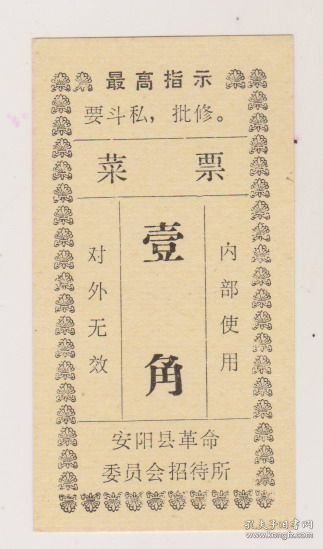 最高指示
要斗私，批修。
菜票
对外无效
壹角
内部使用
安阳县革命
委员会招待所
孔夫子旧书网
www.kongfz.com